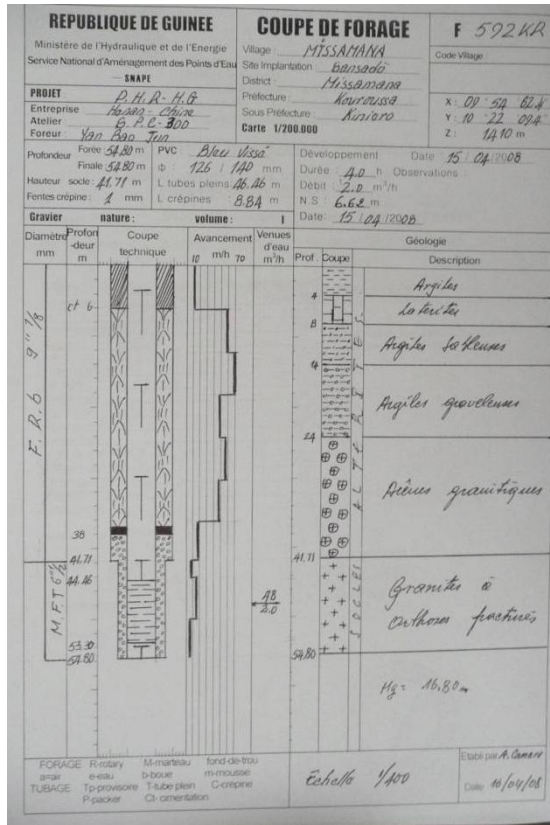 REPUBLIQUE DE GUINEE
Ministère de l'Hydraulique et de l'Energie
Service National d'Aménagement des Points d'Eau
SNAPE
PROJET P.H.R-H.G
Entreprise Henan-Chine
Atelier G.P.C-300
Foreur Yan Bao Jun
COUPE DE FORAGE
Village : MISSAMANA
Site Implantation bansadö
District : Missamana
Préfecture : Kouroussa
Sous Préfecture : Kiniero
Carte 1/200.000
F 592KR
Code Village
X : 09 54 62.4
Y : 10 22 09.4
Z : 1410 m
Profondeur Forée : 54.80 m
Finale : 54.80 m
Hauteur socle : 41.71 m
Fentes crépine : 1 mm
PVC Bleu Vissé
Φ 126 / 140 mm
L tubes pleins 46.46 m
L crépines : 8.84 m
Développement Date 15 / 04 / 2008
Durée : 4.0 h Observations :
Débit : 2.0 m³/h
N.S : 6.62 m
Date : 15 / 04 / 2008
Gravier nature : volume : l
Diamètre mm
Profondeur m
Coupe technique
Avancement m/h
10 70
Venues d'eau m³/h
Géologie
Prof. Coupe Description
F.R.b 9"7/8
ct 6
38
41.71
M.F.T 6"1/2
44.46
53.30
54.80
48
2.0
4 Argiles
8 Laterites
14 Argiles Sableuses
24 Argiles graveleuses
41.71 Arènes granitiques
54.80 Granites à
orthoses fracturés
ALTERITES
SOCLES
Hg = 16.80m
FORAGE R-rotary M-marteau fond-de-trou
a=air e-eau b-boue m-mousse
TUBAGE Tp-provisoire T-tube plein C-crépine
P-packer Ct- cimentation
Echelle 1/400
Etabli par A. Camara
Date : 16/04/08